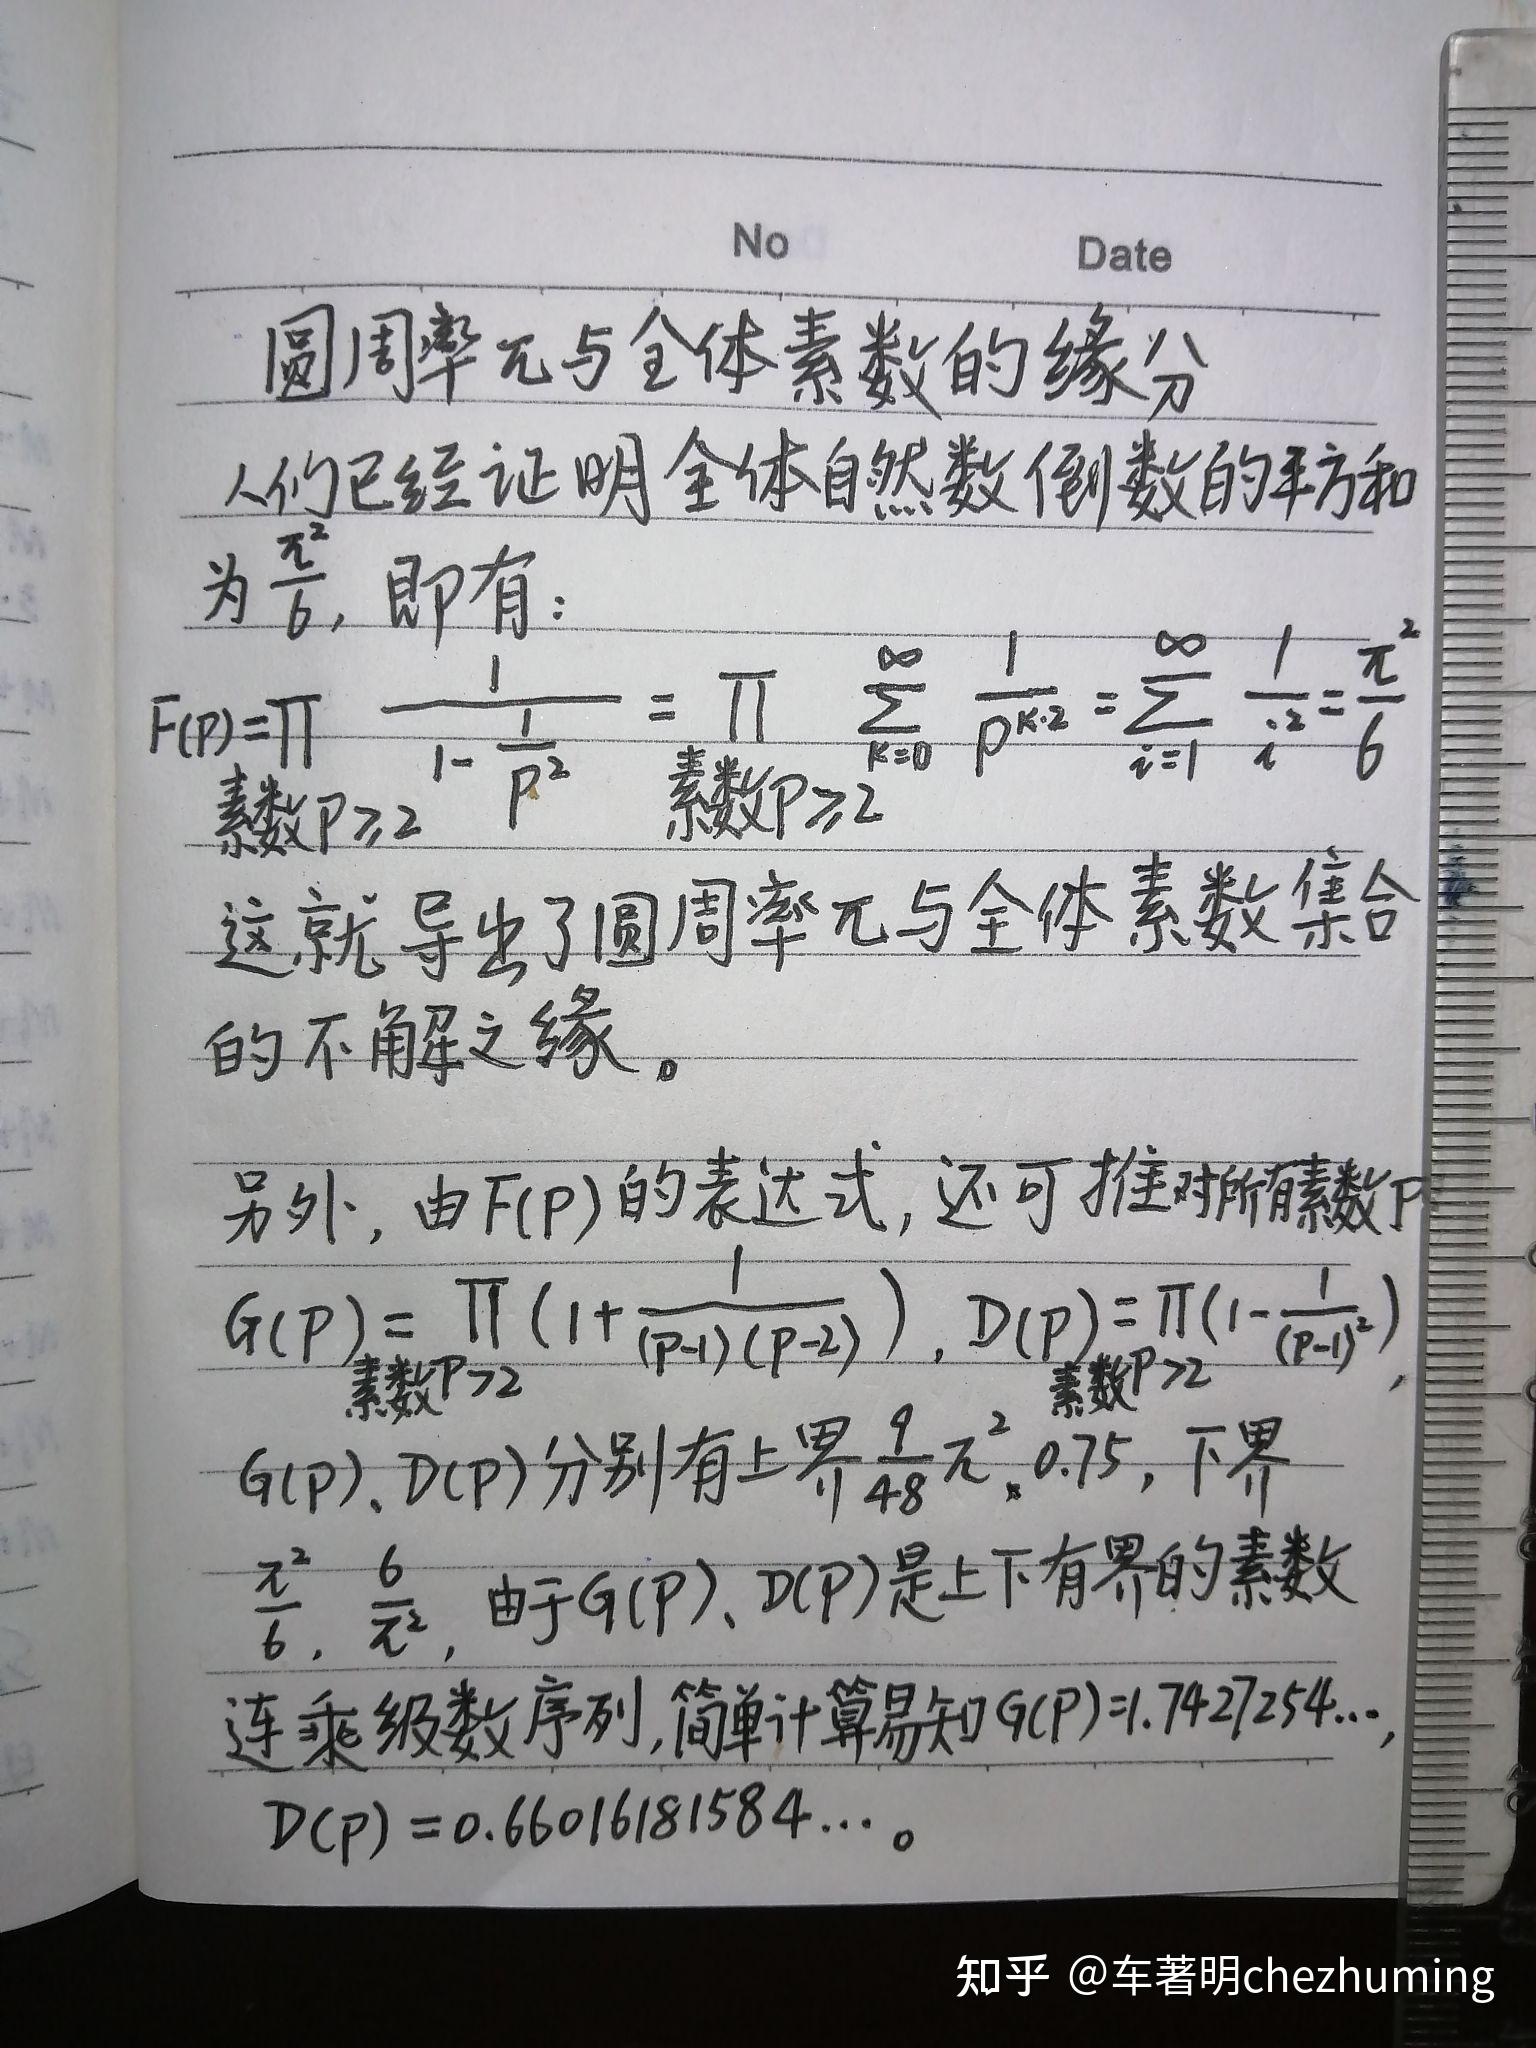 No Date
圆周率π与全体素数的缘分
人们已经证明全体自然数倒数的平方和
为π²/6, 即有:
F(p)=∏ 1/(1-1/p²) = ∏ ∑ 1/p^(k·2) = ∑ 1/i² = π²/6
素数p≥2 素数p≥2 k=0 ∞ i=1 ∞
这就导出了圆周率π与全体素数集合
的不解之缘。
另外, 由F(p)的表达式, 还可推对所有素数p
G(p)=∏(1+1/((p-1)(p-2))), D(p)=∏(1-1/(p-1)²),
素数p>2 素数p>2
G(p)、D(p)分别有上界9/48π²、0.75, 下界
π²/6, 6/π², 由于G(p)、D(p)是上下有界的素数
连乘级数序列, 简单计算易知G(p)=1.7427254…,
D(p)=0.66016181584…。
知乎 @车著明chezhuming